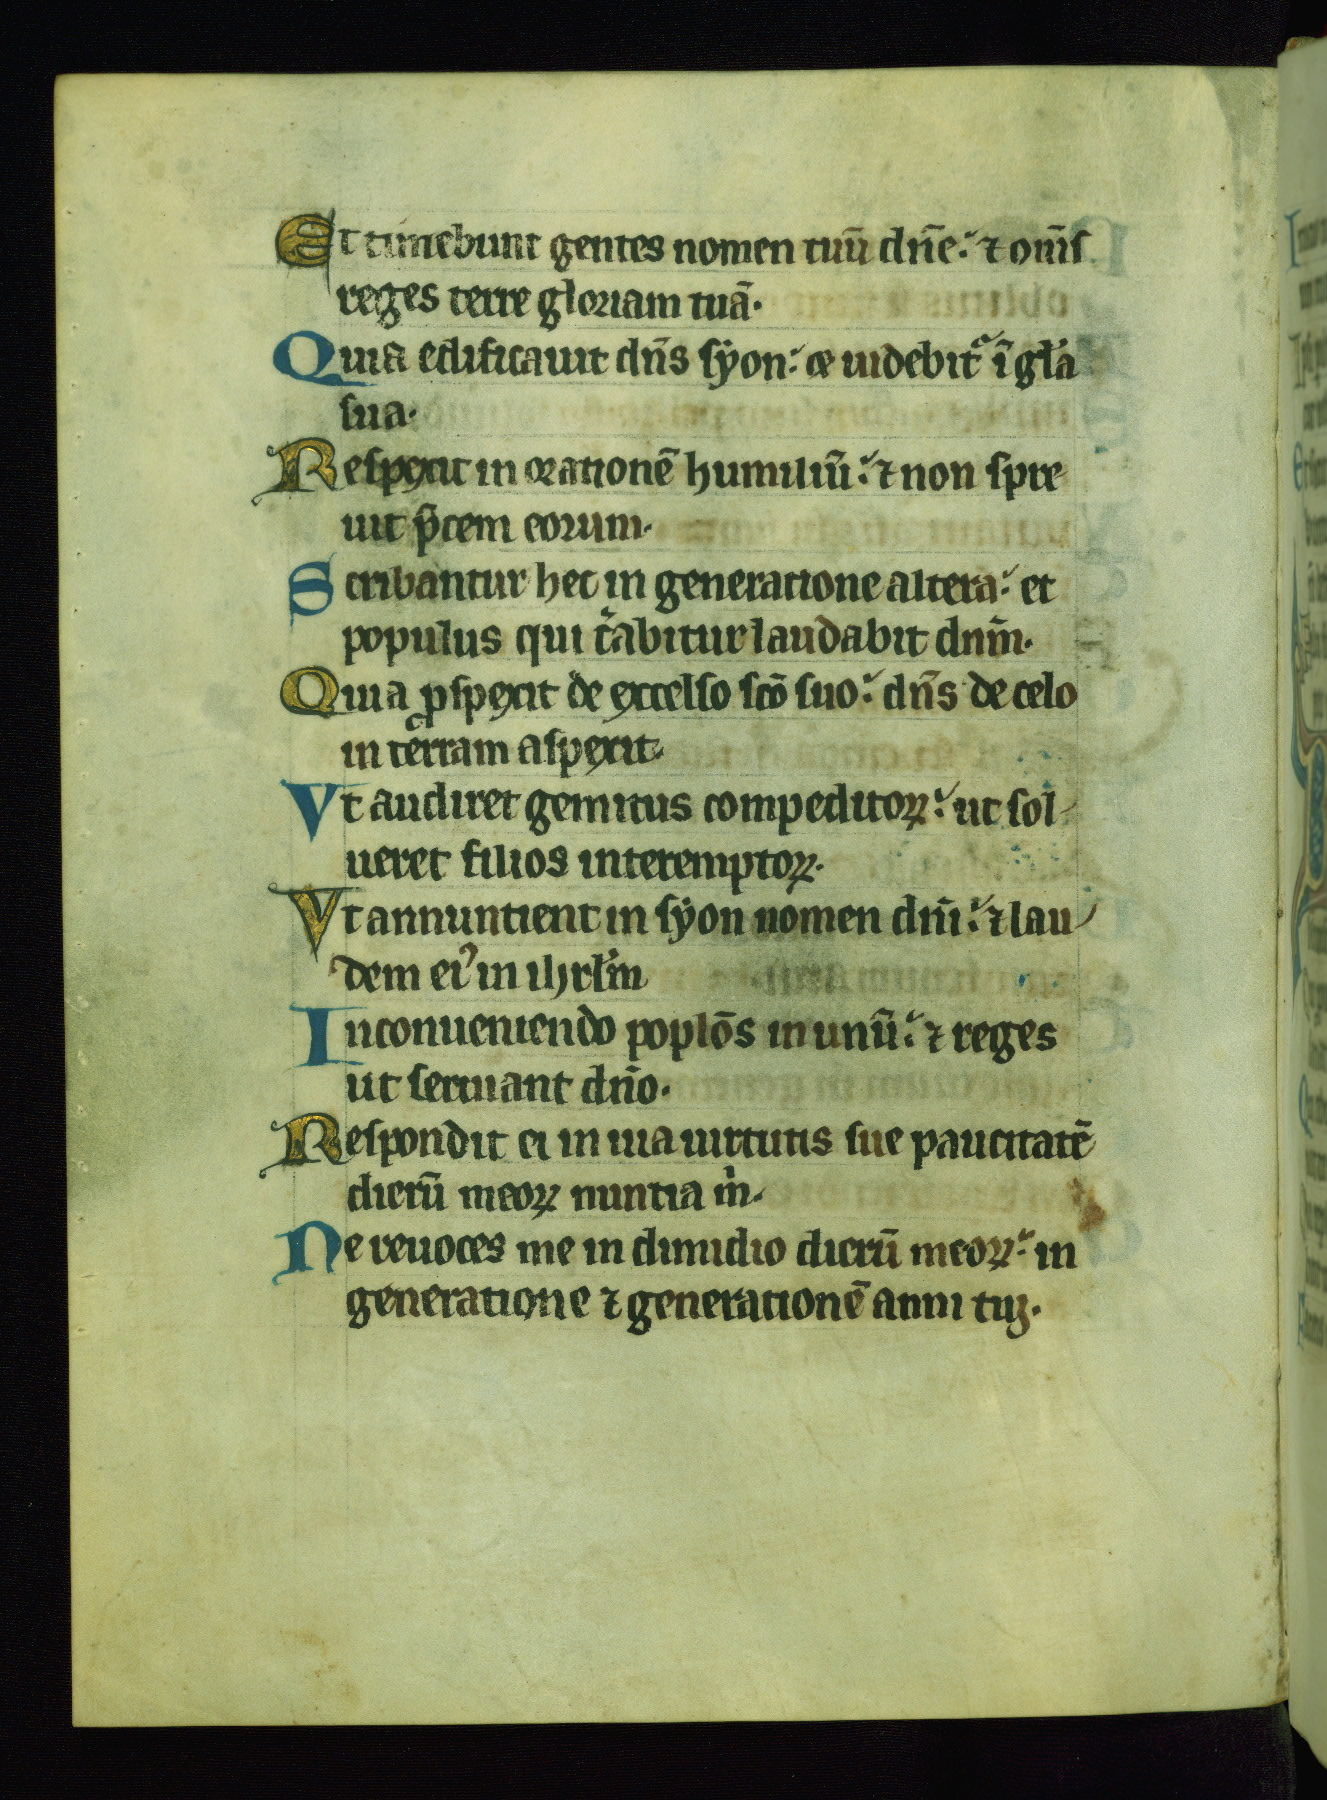 Et timebunt gentes nomen tuū dn̄e: ⁊ om̄s
reges terre gloriam tuā.
Quia edificauit dn̄s sẏon: et uidebit᷑ ī gl̄a
sua.
Respexit in orationē humiliū: ⁊ non spre
uit p̄cem eorum.
Scribantur hec in generatione altera: et
populus qui c̄abitur laudabit dnm̄.
Quia ꝓspexit de excelso sc̄o suo: dn̄s de celo
in terram aspexit.
Vt audiret gemitus compeditoꝝ: ut sol
ueret filios interemptoꝝ.
Vt annuntient in sẏon nomen dn̄i: ⁊ lau
dem eiꝰ in ihrl̄m
Inconueniendo popl̄os in unū: ⁊ reges
ut seruiant dn̄o.
Respondit ei in uia uirtutis sue paucitatē
dierū meoꝝ nuntia m̄.
Ne reuoces me in dimidio dierū meoꝝ: in
generatione ⁊ generationē anni tui.